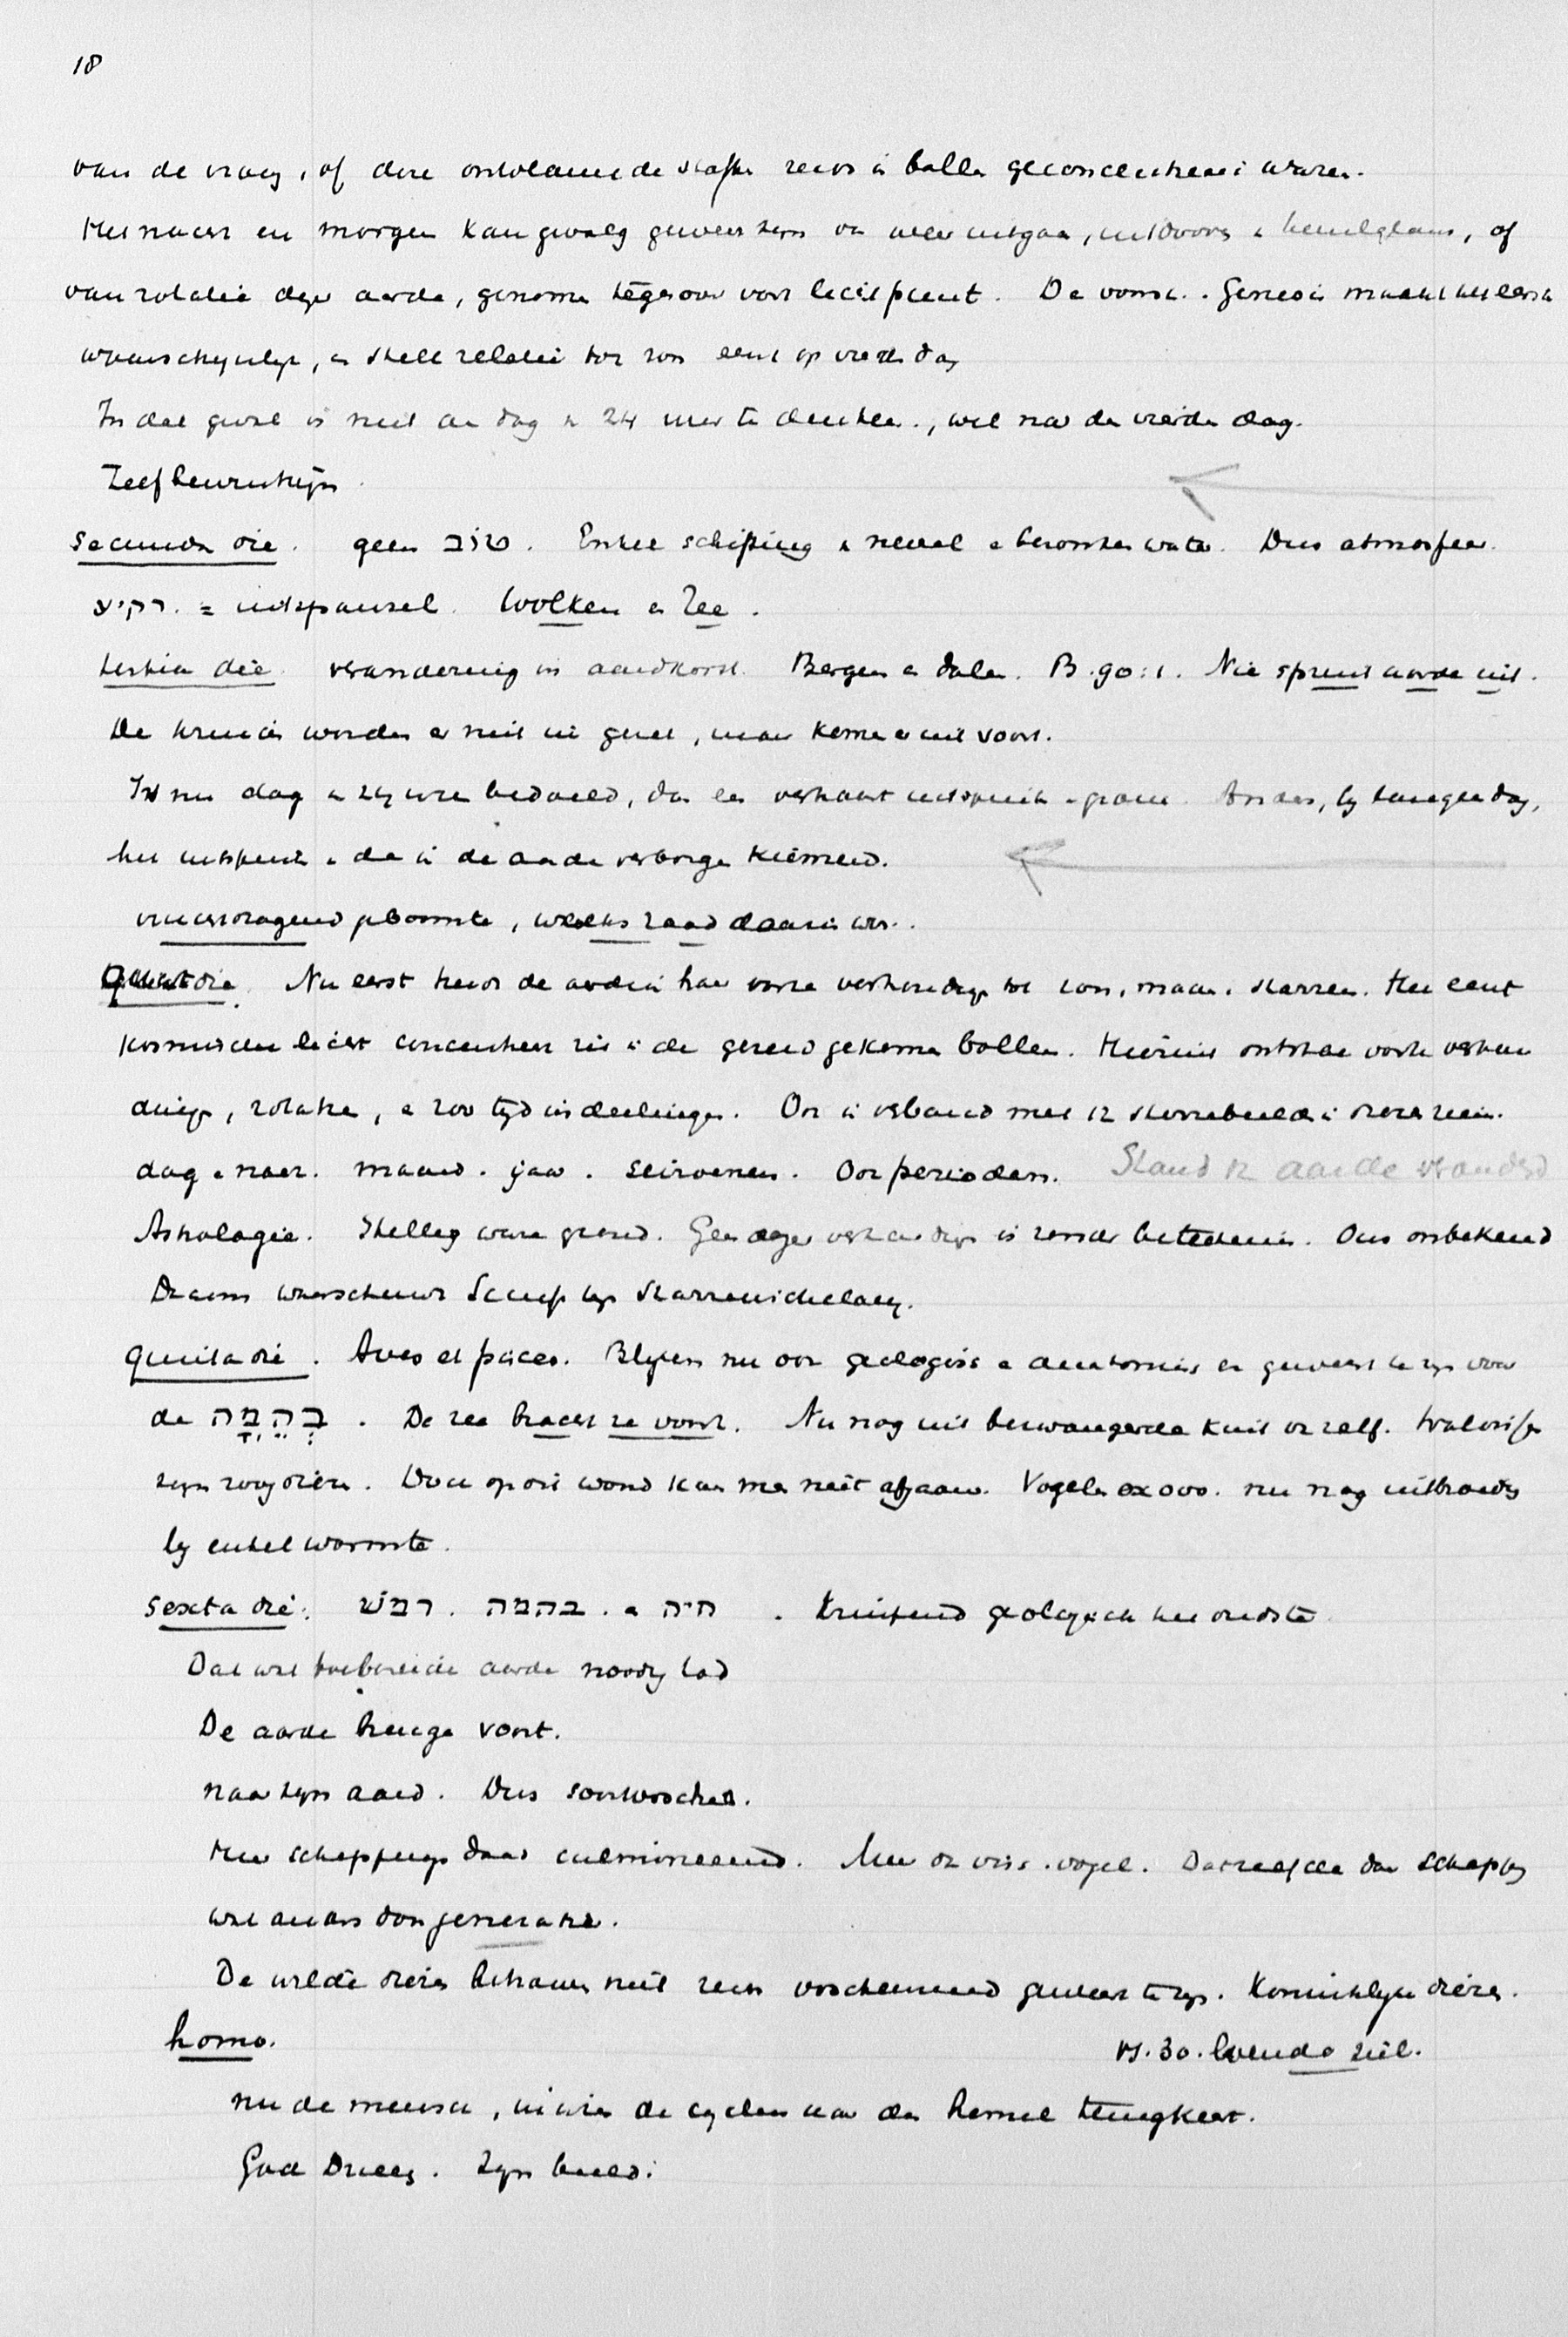 18
van de vraag, of deze ontvlamde stoffen reeds in bollen geconcentreerd waren.
Het nacht en morgen kan gevolg geweest zijn van uitgaan, uitdooven hemelglans, of
van rotatie dezer aarde, genomen tegenover vast lichtpunt. De voorst. Genesis maakt het eerste
waarschynlyk, en stelt relatie tot zon eerst op vierde dag
In dat geval is niet aan dag van 24 uur te denken, wel na de vierde dag.
Zeef
secunda die. geen טוב. Enkel schifting nevel en water. Dus atmosfeer.
רקיע. = uitspansel. Wolken en Zee.
tertia die. verandering in aardkorst. Bergen en dalen. Ps. 90:1. Nu spruit aarde uit.
De kruiden worden er niet in gezet, maar komen er uit voort.
Is nu dag van 24 uren bedoeld, dan een verhaast uitspruiten groeien. Anders, by langen dag,
het uitspruiten de in de aarde verborgen kiemen.
vruchtdragend geboomte, welks zaad daarin was.
Quarta die. Nu eerst treedt de aarde in haar vaste verhouding tot zon, maan, starren. Het eerst
kosmische licht concentreert zich in de gereed gekomen bollen. Hieruit ontstaan vaste verhou
dingen, rotatie, en zoo tydindeelingen. Ook in verband met 12 sterrebeelden in dierenriem.
dag en nacht. maand. jaar. seizoenen. Ook perioden. Stand der aarde veranderd
Astrologie. Stelling ware gezond. Geen dezer verhoudingen is zonder beteekenis. Ons onbekend
Daarom waarschuwt Schrift tegen starrenwichelary.
quinta die. Aves et pisces. Blyken nu ook geologisch en anatomisch er geweest te zyn voor
de בְּהֵמָה. De zee bracht ze voort. Nu nog uit bezwangerde kuit vanzelf. Walvisschen
zyn zoogdieren. Doch op dit woord kan men niet afgaan. Vogelen ex ovo. nu nog uitbroeden
by enkel warmte.
sexta die: רמש. בהמה. en חיה. Kruipend geologisch het oudste.
Dat wat toebereide aarde noodig had
De aarde brenge voort.
naar zyn aard. Dus soortvorschen.
Hier scheppings daad culmineerend. Meer dan visch. vogel. Datzelfde dan schepping
wat anders dan generatie.
De wilde dieren behoeven niet reeds verscheurend geweest te zyn. Koninklyke dieren.
homo. vs. 30. levende ziel.
nu de mensch, in wien de cyclus naar den hemel terugkeert.
God Drieenig. Zyn beeld.